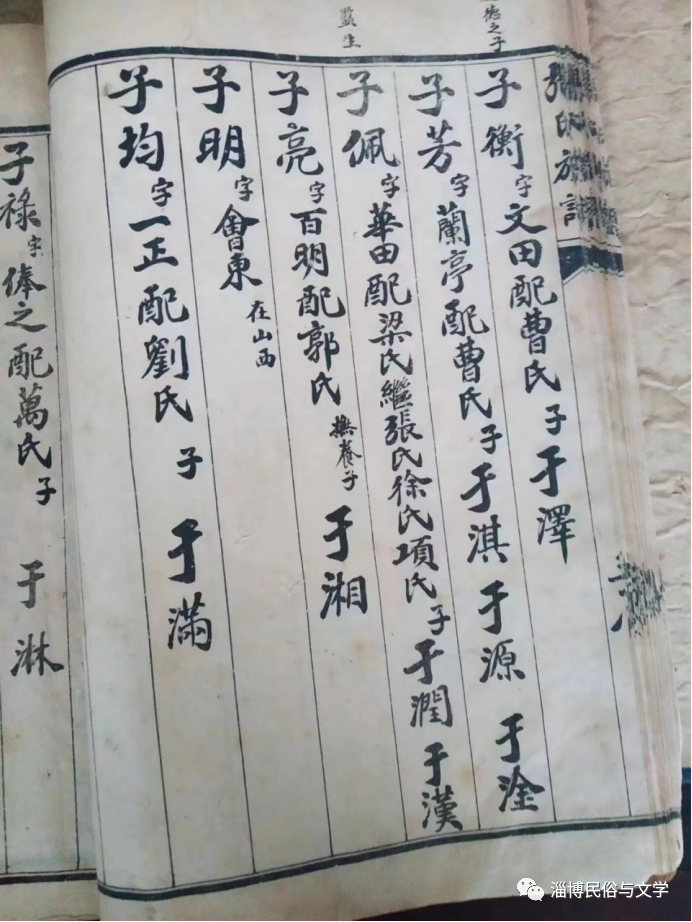 德之子
監生
子衡字文田配曹氏子于澤
子芳字蘭亭配曹氏子于淇于源于淦
子佩字華田配梁氏繼張氏徐氏項氏子于潤于漢
子亮字百明配郭氏撫養子于湘
子明字會東在山西
子均字一正配劉氏子于滿
子祿字俸之配萬氏子于淋
淄博民俗与文学